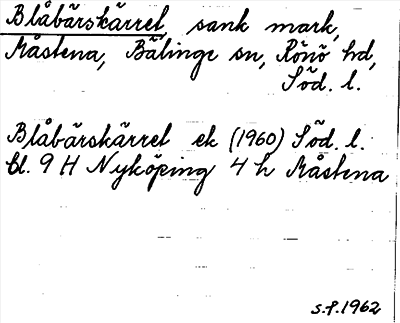 Blåbärskärret sank mark,
Måstena, Bälinge sn, Rönö hd,
Söd. l.
Blåbärskärret ek (1960) Söd. l.
bl. 9 H Nyköping 4 h Måstena
S.P. 1962